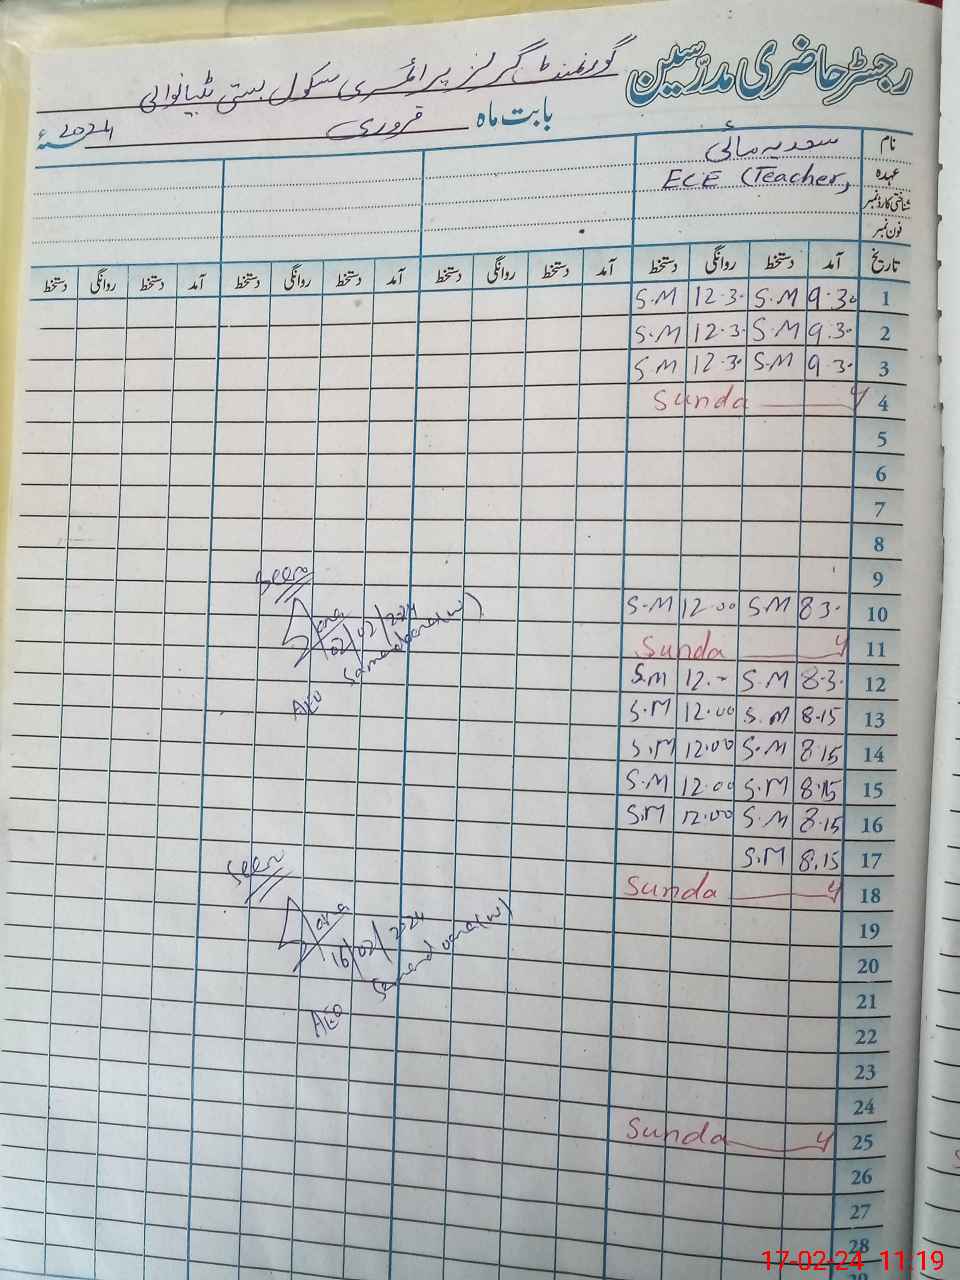 رجسٹر حاضری مدرّسین گورنمنٹ گرلز پرائمری سکول بستی
بابت ماہ فروری 2024ء
نام سعدیہ مائی
عہدہ ECE (Teacher,
شناختی کارڈ نمبر
فون نمبر
تاریخ آمد دستخط روانگی دستخط آمد دستخط روانگی دستخط آمد دستخط روانگی دستخط
1 9.30 S.M 12.30 S.M
2 9.30 S.M 12.30 S.M
3 9.30 S.M 12.30 S.M
4 Sunday
5
6
7
8
9
Seen
10 8.30 S.M 12.00 S.M
02/02/2024
11 Sunday
12 8.30 S.M 12.- S.M
AEO
13 8.15 S.M 12.00 S.M
14 8.15 S.M 12.00 S.M
15 8.15 S.M 12.00 S.M
16 8.15 S.M 12.00 S.M
17 8.15 S.M
Seen
18 Sunday
19
16/02/2024
20
21
AEO
22
23
24
25 Sunday
26
27
28
17-02-24 11:19